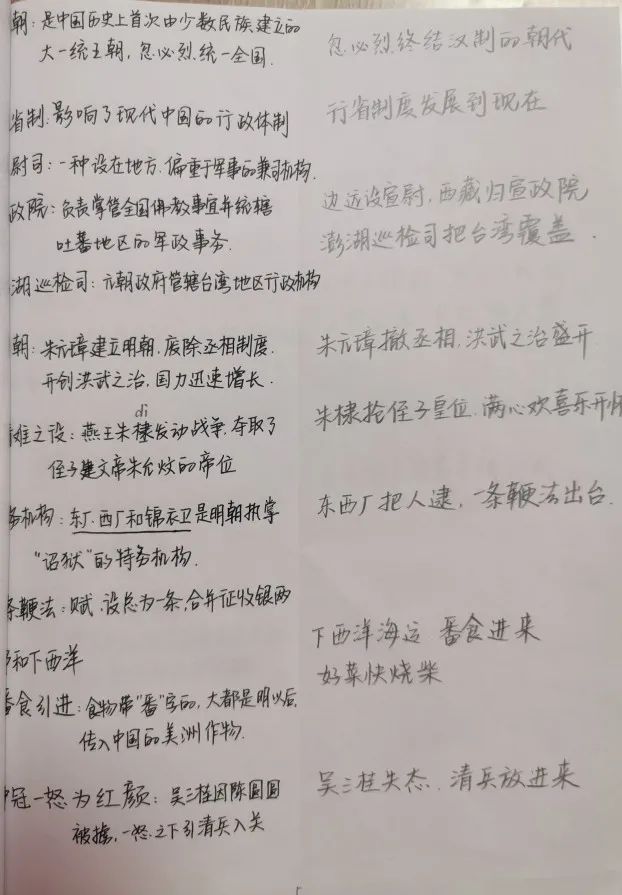 朝：是中国历史上首次由少数民族建立的
大一统王朝，忽必烈统一全国．
忽必烈终结汉制的朝代
省制：影响了现代中国的行政体制
行省制度发展到现在
尉司：一种设在地方．偏重于军事的兼司机构．
政院：负责掌管全国佛教事宜并统辖
吐蕃地区的军政事务．
边远设宣尉，西藏归宣政院
澎湖巡检司把台湾覆盖．
湖巡检司：元朝政府管辖台湾地区行政机构
朝：朱元璋建立明朝．废除丞相制度．
开创洪武之治，国力迅速增长．
朱元璋撤丞相，洪武之治盛开
难之设：燕王朱棣发动战争，夺取了
di
侄子建文帝朱允炆的帝位
朱棣抢侄子皇位．满心欢喜乐开怀
务机构：东厂、西厂和锦衣卫是明朝执掌
“诏狱”的特务机构．
东西厂把人逮，一条鞭法出台．
条鞭法：赋、设总为一条，合并征收银两
和下西洋
下西洋海运 番食进来
好菜快烧柴
番食引进：食物带“番”字的，大都是明以后，
传入中国的美洲作物．
冠一怒为红颜：吴三桂因陈圆圆
被掳，一怒之下引清兵入关
吴三桂失态．清兵放进来